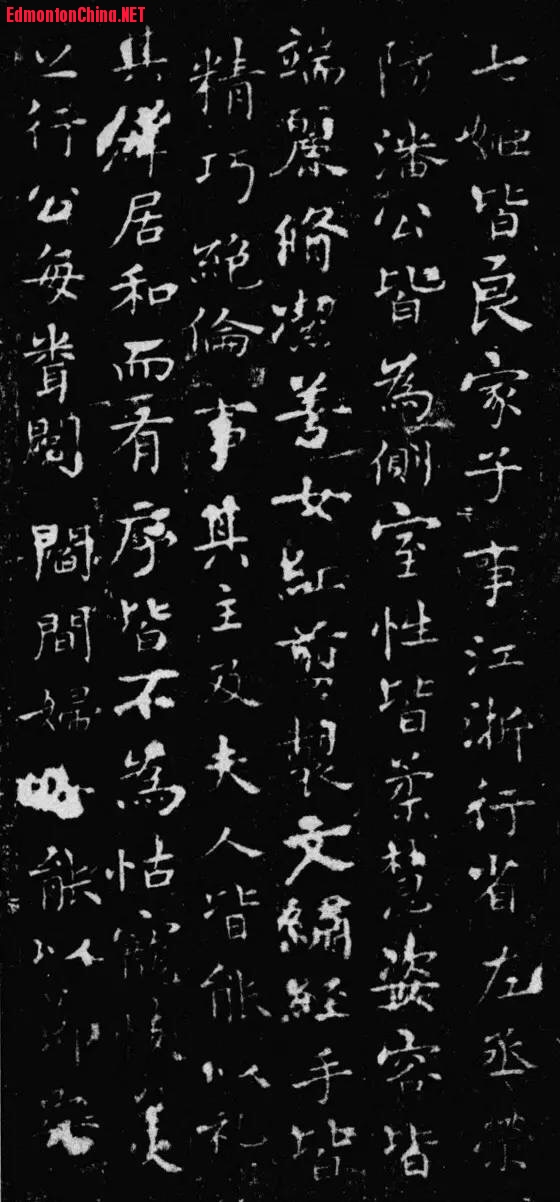 EdmontonChina.NET
七姬皆良家子事江浙行省左丞榮
陽潘公皆為側室性皆柔慧姿容皆
端麗脩潔善女紅剪製文繡經手皆
精巧絕倫事其主及夫人皆能以礼
其羣居和而有序皆不為怙寵忮美
之行公每閭閻間婦能以節